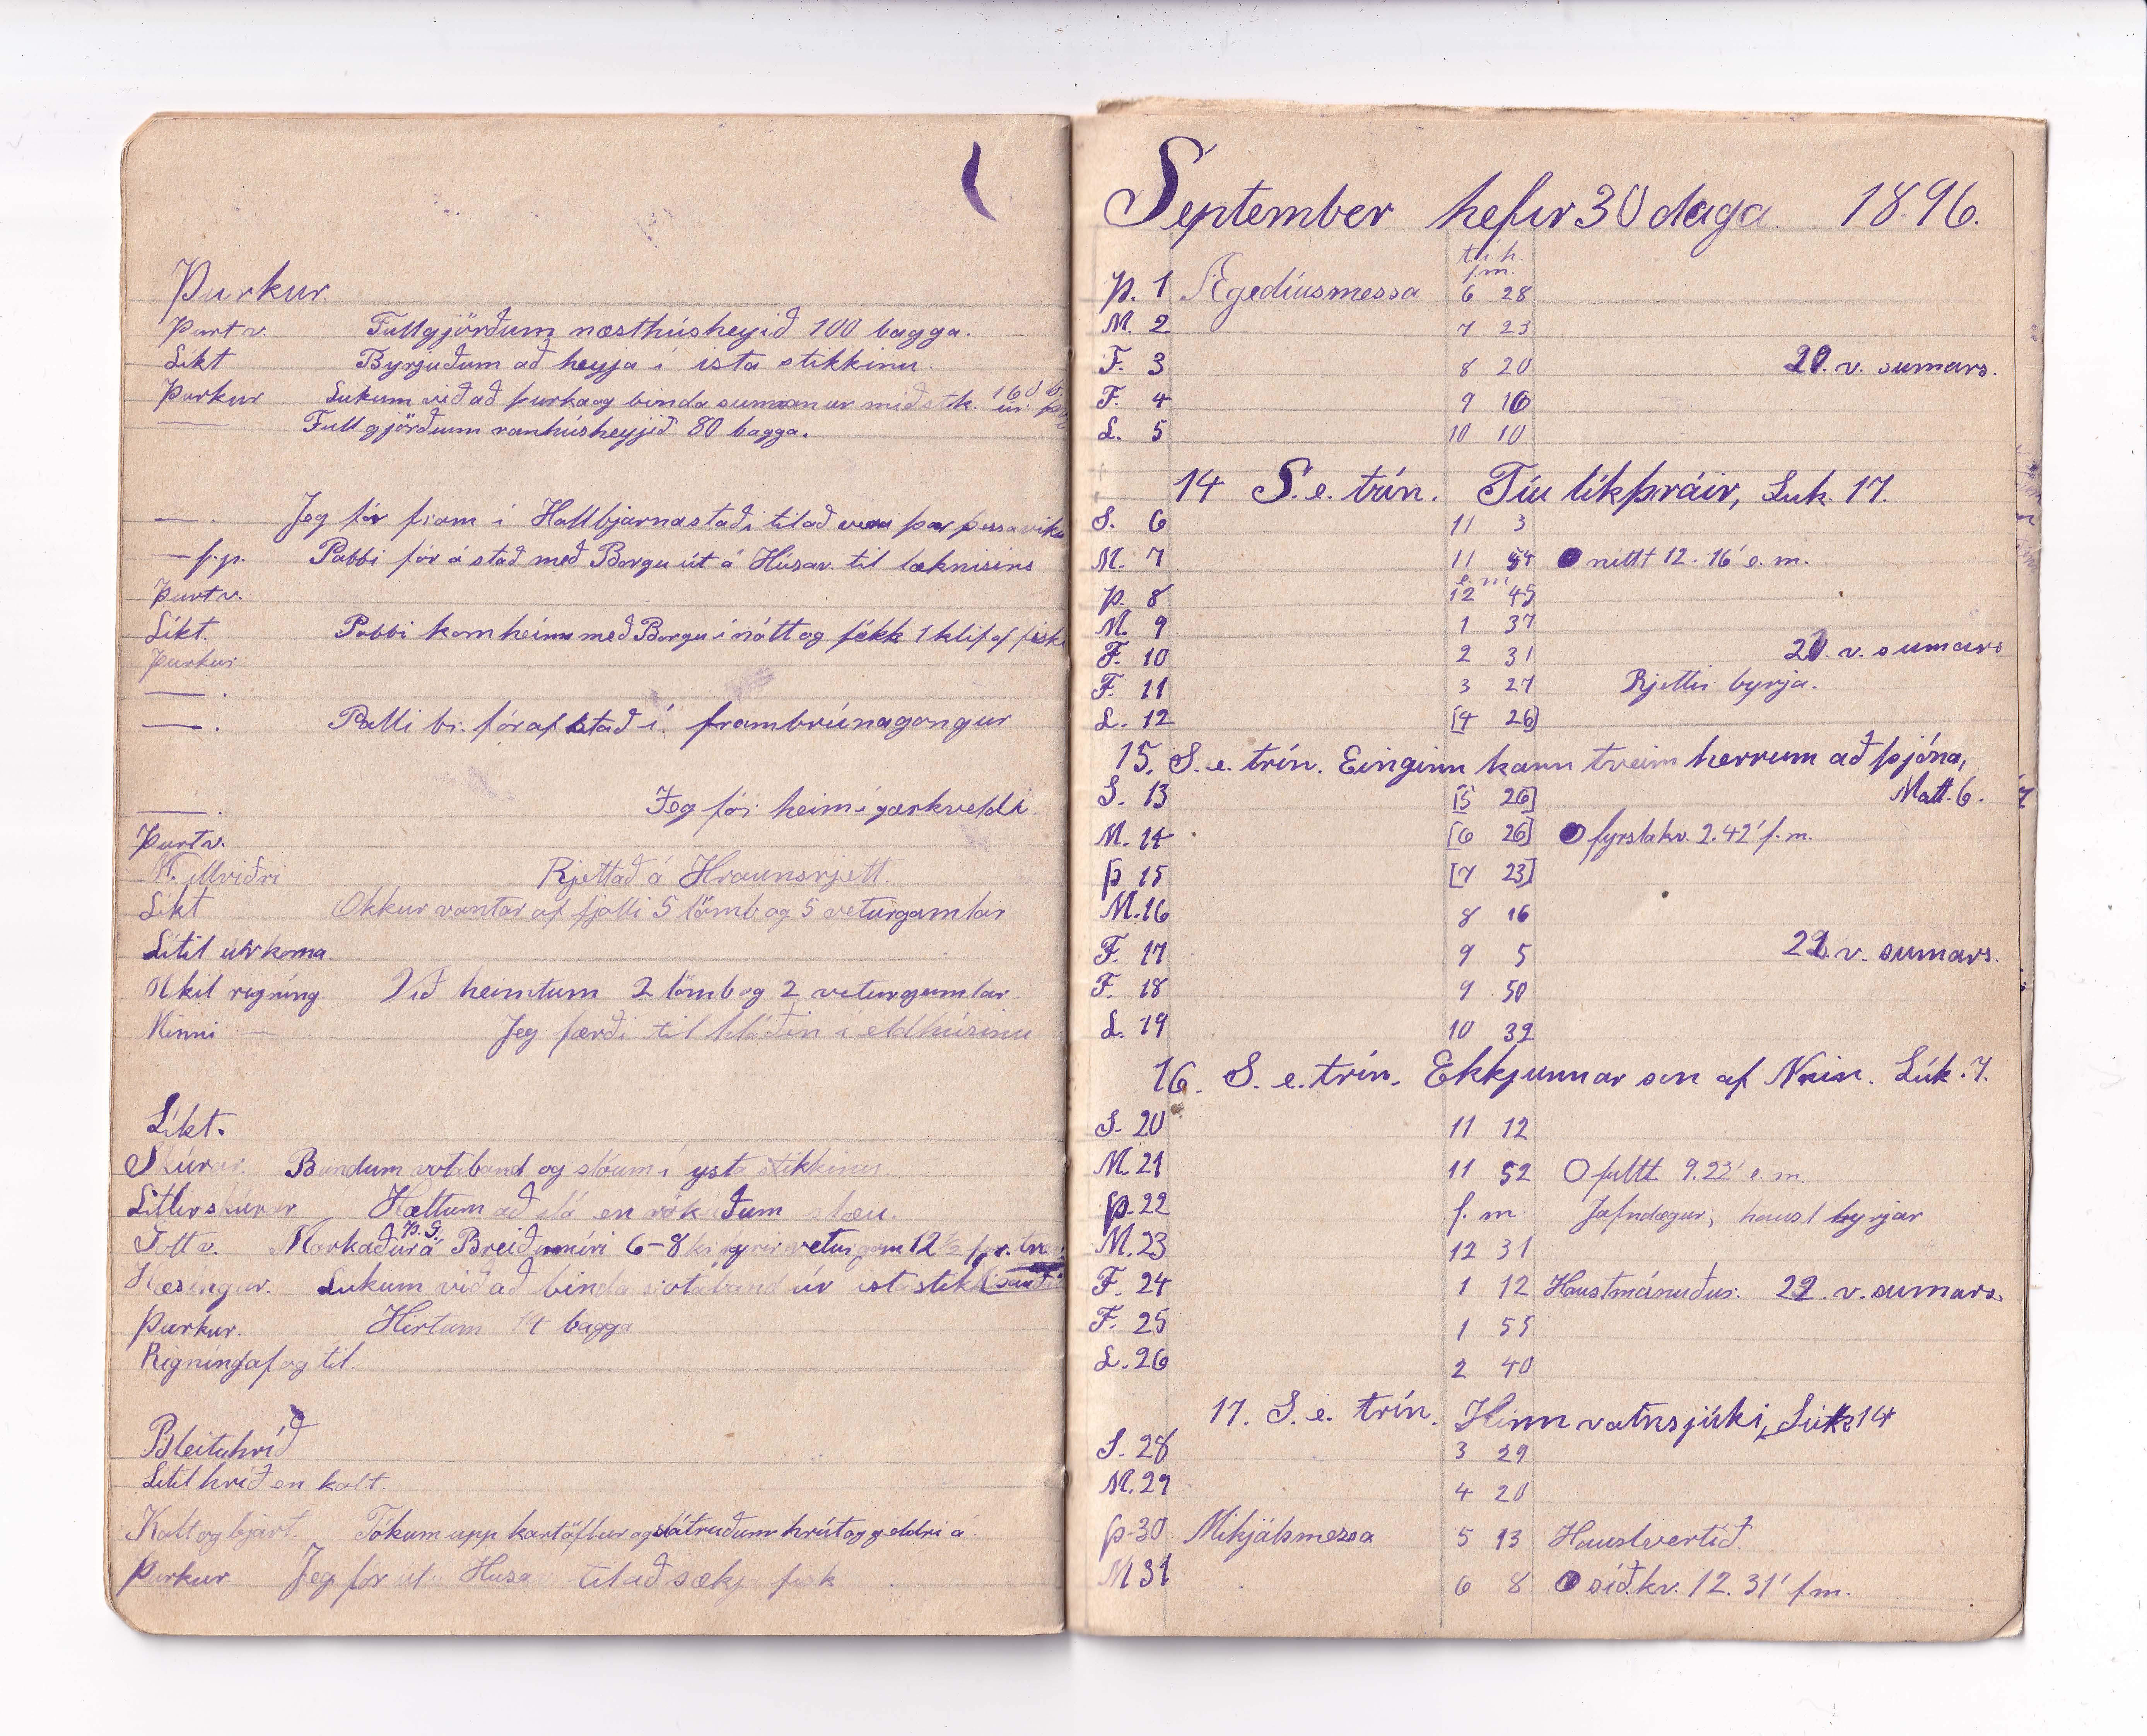 Þurkur
Þurt v. Fullgjörðum næsthúsheyið 100 bagga.
Líkt Byrjuðum að heyja í ista stikkinu
Þurkur Lukum við að þurka og binda saman ur miðstk. 160 b.
— Fullgjörðum ranhúsheyjið 80 bagga.
— . Jeg fór fram í Hallbjarnastaði til að vera þar þessa viku
— f.p. Pabbi fór á stað með Borgu út á Húsav. til læknisins
Þurt v.
Líkt. Pabbi kom heim með Borgu í nótt og fékk 1 klif af fiski
Þurkur
— .
— . Palli br. fór af stað í frambrúnagongur
— . Jeg fór heim í gærkveldi.
Þurt v.
Illviðri Rjettað á Hraunsrjett.
Líkt Okkur vantar af fjalli 5 lömb og 5 veturgamlar
Lítil úrkoma
Mikil rigning Við heimtum 2 lömb og 2 veturgamlar
Minni — Jeg færði til hlóðin í eldhúsinu
Líkt.
Skúrar. Bundum votaband og slóum í ysta stikkinu.
Litlir skúrar Hættum að slá en rökuðum slæu.
Þ. G.
Gott v. Markaður á Breiðumíri 6-8 kr fyrir veturgam 12 1/2 for. tve
Hæsingur. Lukum við að binda votaband úr ista stikk (sauði
Þurkur. Hirtum 14 bagga
Rigning af og til.
Bleituhríð
Lítil hríð en kalt.
Kalt og bjart. Tókum upp kartöflur og slátruðum hrút og geldri á
Þurkur Jeg fór út Husa til að sækja fisk
September hefir 30 daga 1896.
t.í h.
f.m.
Þ. 1 Ægedíusmessa 6 28
M. 2 7 23
F. 3 8 20 20. v. sumars.
F. 4 9 16
L. 5 10 10
14 S. e. trín. Tíu líkþráir, Luk. 17.
S. 6 11 3
M. 7 11 54 nítt 12. 16' e. m.
e. m
Þ. 8 12 45
M. 9 1 37
F. 10 2 31 21. v. sumars
F. 11 3 27 Rjettir byrja.
L. 12 [4 26]
15. S. e. trín. Einginn kann tveim herrum að þjóna,
Matt. 6.
S. 13 [5 26]
M. 14 [6 26] fyrsta kv. 2.42' f. m.
Þ 15 [7 23]
M. 16 8 16
F. 17 9 5 22. v. sumars.
F. 18 9 50
L. 19 10 32
16. S. e. trín. Ekkjunnar son af Nain. Lúk. 7.
S. 20 11 12
M. 21 11 52 fullt. 9.22' e. m.
Þ. 22 f. m Jafndægur, haust byrjar
M. 23 12 31
F. 24 1 12 Haustmánuður. 22. v. sumars.
F. 25 1 55
L. 26 2 40
17. S. e. trín. Hinn vatnsjúki, Lúk. 14
S. 28 3 29
M. 29 4 20
Þ. 30 Mikjálsmessa 5 13 Haustvertíð.
M 31 6 8 síð. kv. 12. 31' f m.